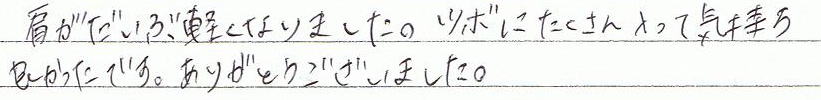 肩がだいぶ軽くなりました。ツボにたくさん入って気持ち
良かったです。ありがとうございました。